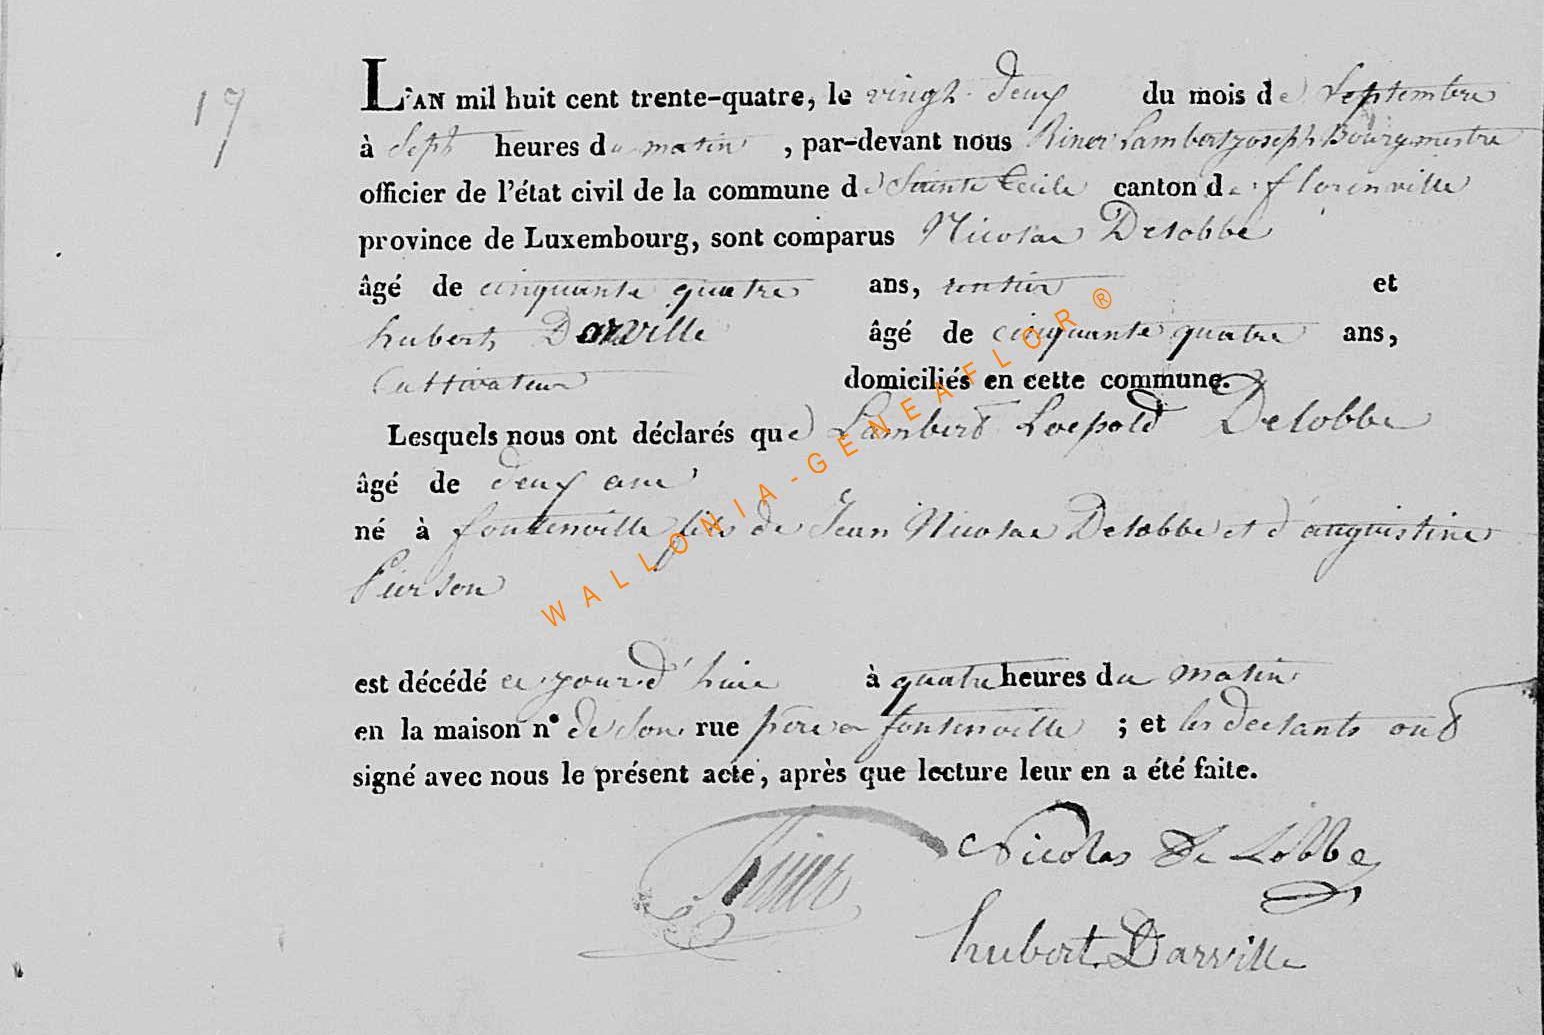 17
L'AN mil huit cent trente-quatre, le vingt deux du mois de Septembre
à Sept heures du matin, par-devant nous Riner Lambert joseph Bourgmestre
officier de l'état civil de la commune de Sainte Cecile canton de florenville
province de Luxembourg, sont comparus Nicolas Delobbe
âgé de cinquante quatre ans, rentier et
hubert Darville âgé de cinquante quatre ans,
Cultivateur domiciliés en cette commune.
Lesquels nous ont déclarés que Lambert Leopold Delobbe
âgé de deux ans
né à fontenville fils de Jean Nicolas Delobbe et d'auguistine
Pierson
est décédé ce jourd'huie à quatre heures du matin
en la maison n° de son rue père a fontenoille ; et les declarants ont
signé avec nous le présent acte, après que lecture leur en a été faite.
Riner
Nicolas De Lobbe
hubert Darville
WALLONIA-GENEAFLOR®